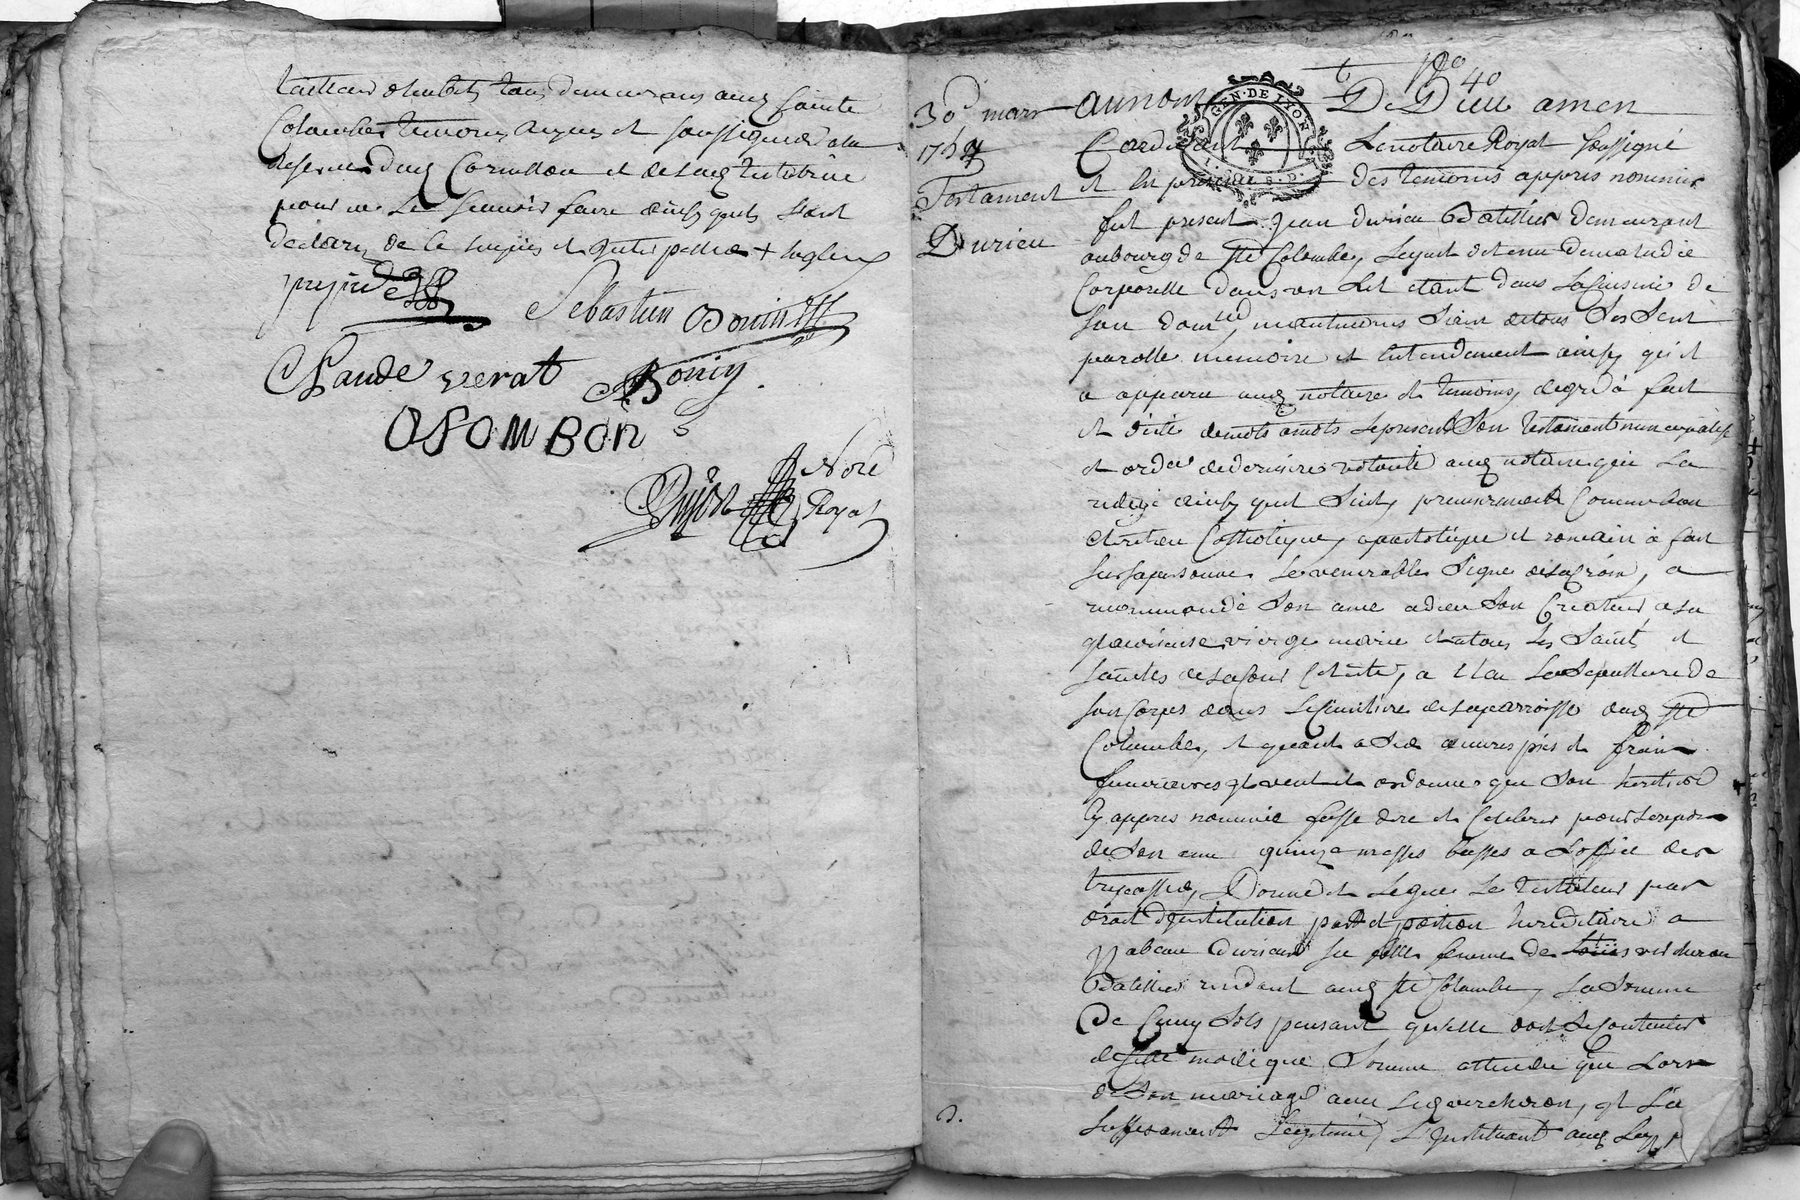 tailleur d'habits tous demeurans audt Sainte
Colombe temoins requis et soussignes a la
reserve dudt et de testatrice
pour ne le scavoir faire ainsy quils l'ont
declaré de ce enquis et interpellés +
Sebastien Bonin
Claude verat ABonin
OSOMBON
Nore
Royal
40
30e mars
1769
Testament
Durieu
Au nom De Dieu amen
Pardevant Le notaire Royal soussigné
et En presence des temoins apprès nommés
fut present Jean durieu Battelier demeurant
au bourg de Ste Colombe, Lequel detenu de maladie
Corporelle dans un Lit etant dans La Cuisine de
son domlle, neantmoins Sain de tous Ses Sens
parolle memoire et Entendement ainsy qu'il
a apparu audt notaire et temoins, de gré à fait
et dicté de mots à mots le present Son testament nuncupatif
et ordce de derniere volonté audt notaire qui La
redigé ainsy quil Suit, premierement Comme bon
Chretien Catholique, apostolique et romain à fait
sur sa personne Le venerable Signe de la Croix, a
recommandé Son ame a dieu Son Createur a La
glorieuse vierge marie et a tous les Saints et
Saintes de La Cour Celeste, a Elu La Sepulture de
son Corps dans Le Cimetiere de sa parroisse dudt Ste
Colombe, et quant a Ses œuvres pies et frais
funeraires il veut et ordonne que Son heritier
Cy apprès nommé fasse dire et Celebrer pour Le repos
de Son ame quinze messes basses a Loffice des
trepassés, Donne et Legue Le testateur par
droit d'institution part et portion hereditaire a
ysabeau durieu sa fille femme de Louis vercheron
Battelier residant audt Ste Colombe, La Somme
De Cinq Sols pensant qu'elle doit Se Contenter
de cette modique Somme attendu que Lors
de Son mariage avec Led vercheron, il L'a
suffisament Legitimé, L'instituant audt
D.